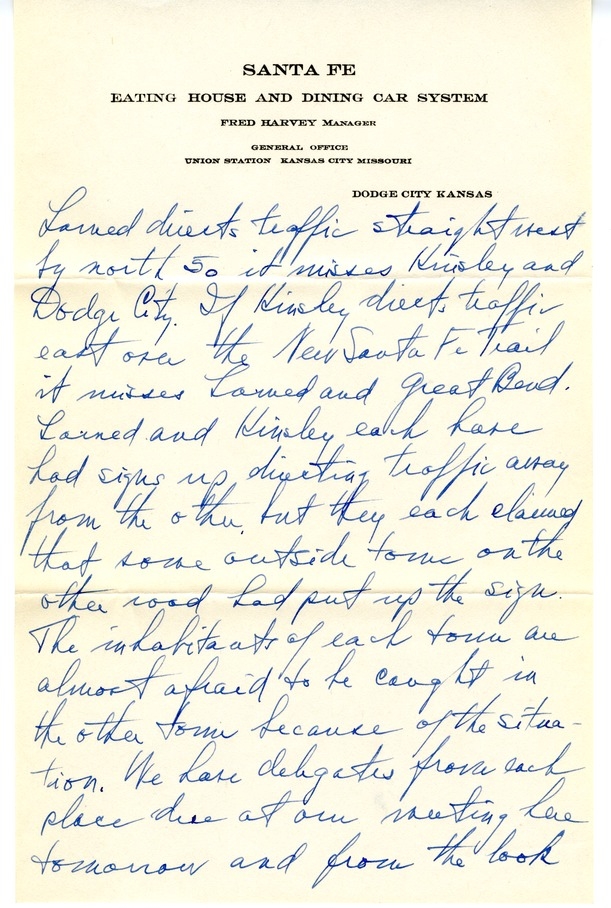 SANTA FE
EATING HOUSE AND DINING CAR SYSTEM
FRED HARVEY MANAGER
GENERAL OFFICE
UNION STATION KANSAS CITY MISSOURI
DODGE CITY KANSAS
Larned directs traffic straight west
by north so it misses Kinsley and
Dodge City. If Kinsley directs traffic
east over the New Santa Fe Trail
it misses Larned and Great Bend.
Larned and Kinsley each have
had signs up directing traffic away
from the other, but they each claimed
that some outside town on the
other road had put up the sign.
The inhabitants of each town are
almost afraid to be caught in
the other town because of the situa-
tion. We have delegates from each
place due at our meeting here
tomorrow and from the look